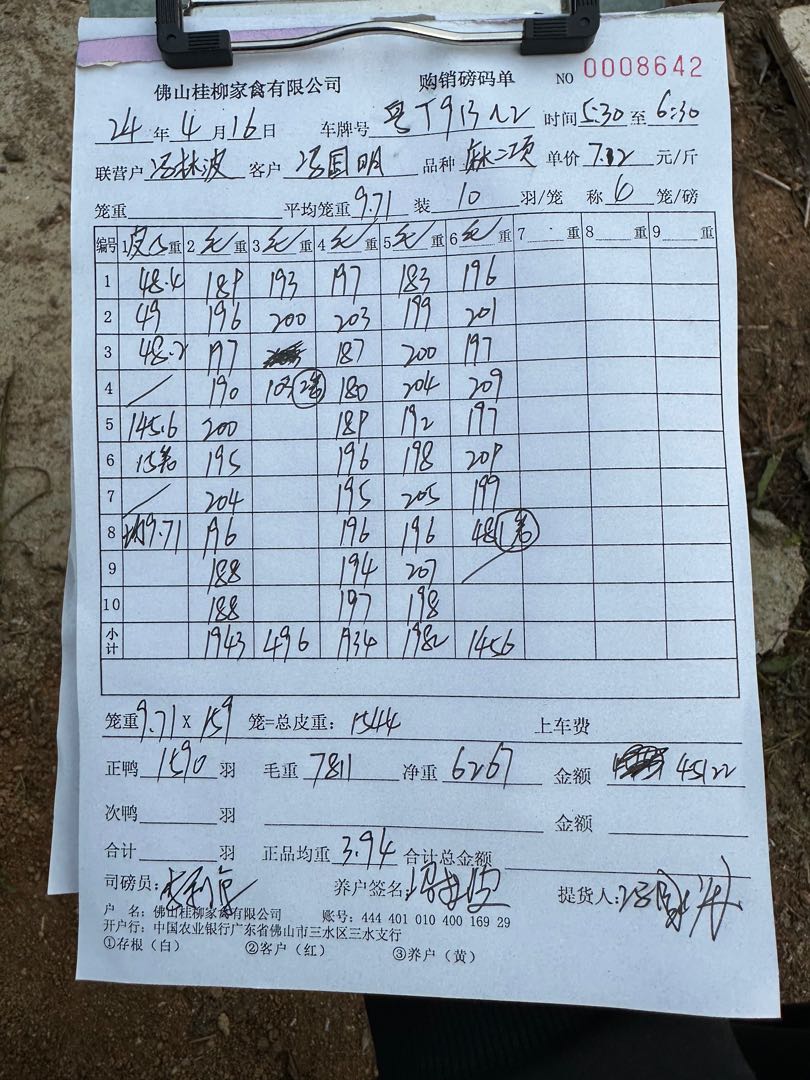 佛山桂柳家禽有限公司 购销磅码单 NO 0008642
24年4月16日 车牌号 粤T913 时间5:30至6:30
联营户 冯林波 客户 冯国明 品种 单价7.12元/斤
笼重 平均笼重9.71 装10羽/笼 称6笼/磅
编号 1皮重 2毛重 3毛重 4毛重 5毛重 6毛重 7重 8重 9重
1 48.4 189 193 197 183 196
2 49 196 200 203 199 201
3 48.2 197 187 200 197
4 / 190 103 2笼 180 204 209
5 145.6 200 189 192 197
6 15笼 195 196 198 209
7 / 204 195 205 199
8 均9.71 196 196 196 48 1笼
9 188 194 207 /
10 188 197 198
小计 1943 496 1934 1982 1456
笼重9.71X159笼=总皮重:1544 上车费
正鸭1590羽 毛重7811 净重6267 金额 45122
次鸭 羽 金额
合计 羽 正品均重3.94 合计总金额
司磅员: 养户签名: 提货人:
户 名:佛山桂柳家禽有限公司 账号:444 401 010 400 169 29
开户行:中国农业银行广东省佛山市三水区三水支行
①存根(白) ②客户(红) ③养户(黄)